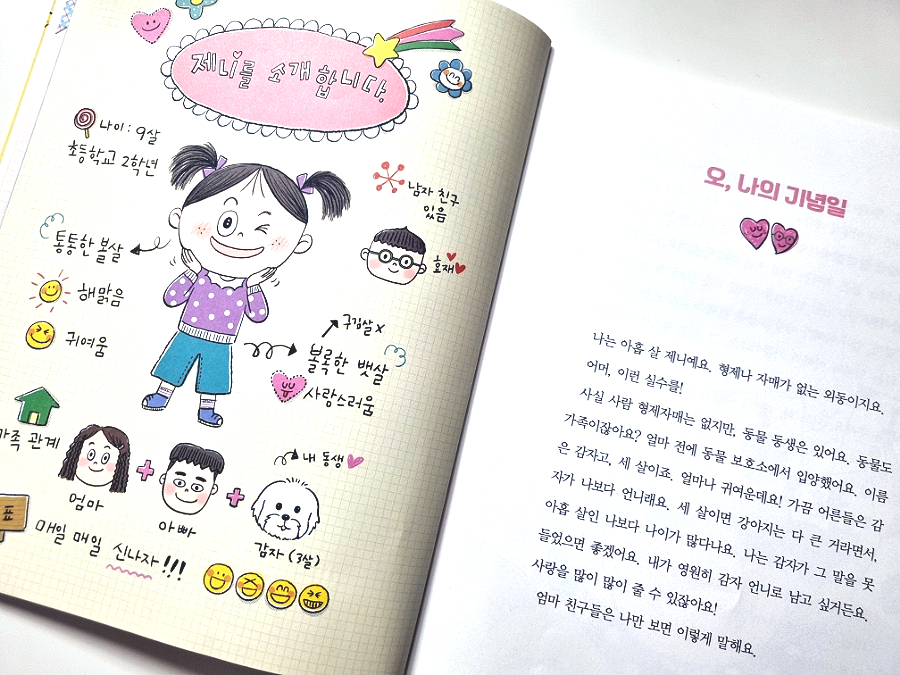 제니를 소개합니다.
나이 : 9살
초등학교 2학년
남자 친구
있음
호재
통통한 볼살
해맑음
귀여움
구김살 x
볼록한 뱃살
사랑스러움
가족 관계
내 동생
엄마
아빠
감자 (3살)
표
매일 매일 신나자!!!
오, 나의 기념일
나는 아홉 살 제니예요. 형제나 자매가 없는 외동이지요.
어머, 이런 실수를!
사실 사람 형제자매는 없지만, 동물 동생은 있어요. 동물도
가족이잖아요? 얼마 전에 동물 보호소에서 입양했어요. 이름
은 감자고, 세 살이죠. 얼마나 귀여운데요! 가끔 어른들은 감
자가 나보다 언니래요. 세 살이면 강아지는 다 큰 거라면서,
아홉 살인 나보다 나이가 많다나요. 나는 감자가 그 말을 못
들었으면 좋겠어요. 내가 영원히 감자 언니로 남고 싶거든요.
사랑을 많이 많이 줄 수 있잖아요!
엄마 친구들은 나만 보면 이렇게 말해요.